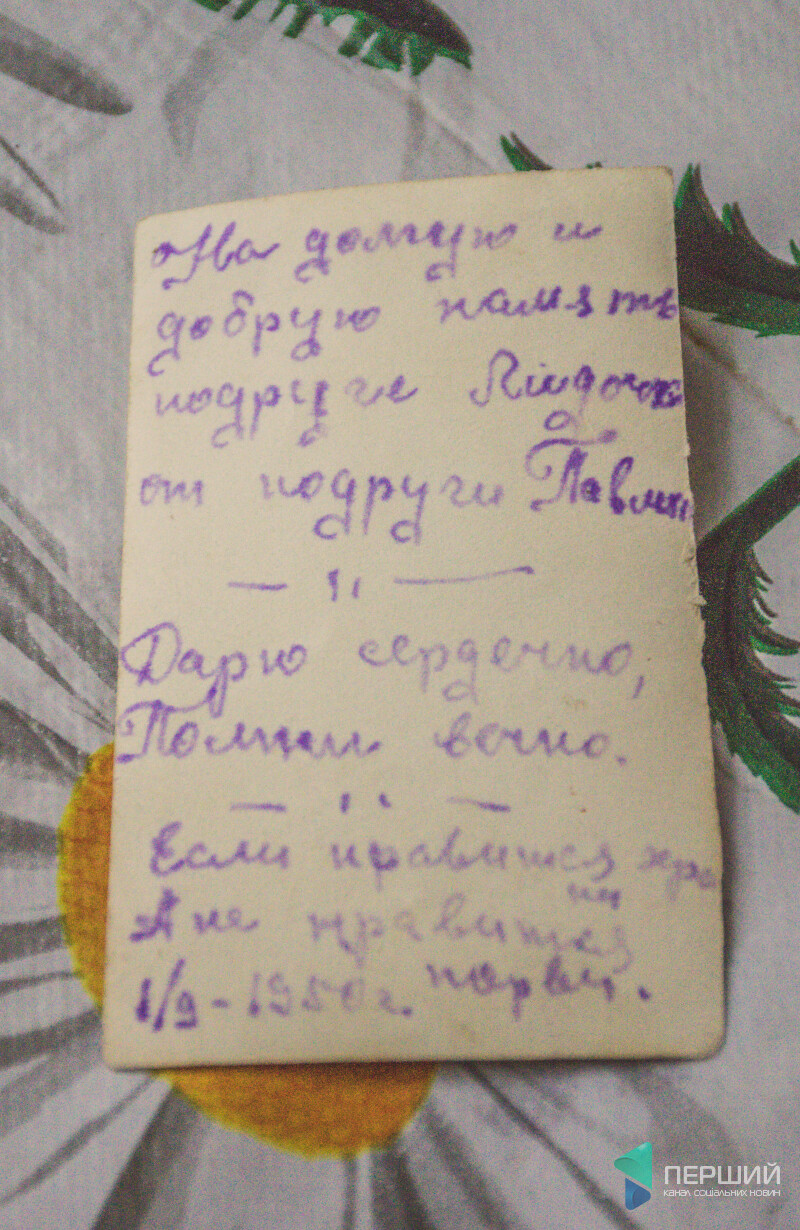 На долгую и
добрую память
подруге Лидочк
от подруги Павлин
— " —
Дарю сердечно,
Помни вечно.
— " —
Если нравится хра
ни
А не нравится
порви.
1/9-1950г.
ПЕРШИЙ
КАНАЛ СОЦІАЛЬНИХ НОВИН